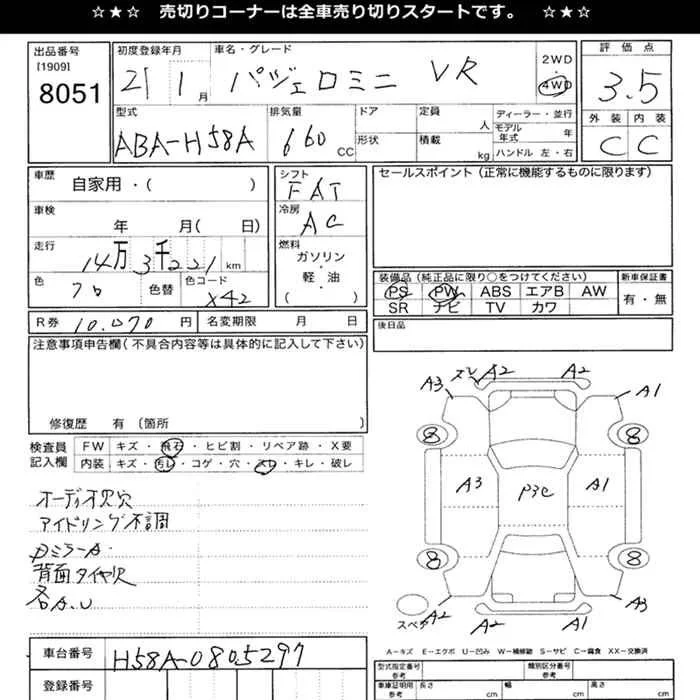 ☆★☆ 売切りコーナーは全車売り切りスタートです。 ☆★☆
出品番号
[1909]
8051
初度登録年月
21 1月
車名・グレード
パジェロミニ VR
2WD
4WD
評価点
3.5
外装 内装
C C
型式
ABA-H58A
排気量
660 CC
ドア
形状
定員
人
積載
kg
ディーラー・並行
モデル年式 年
ハンドル 左・右
車歴
自家用・( )
車検
年 月( 日)
走行
14万3千221km
色
色替
色コード
X42
シフト
FAT
冷房
AC
燃料
ガソリン
・
軽・油
( )
セールスポイント(正常に機能するものに限ります)
装備品(純正品に限り○をつけてください)
PS PW ABS エアB AW
SR ナビ TV カワ
新車保証書
有・無
R券 10.070円 名変期限 月 日
後日品
注意事項申告欄(不具合内容等は具体的に記入して下さい)
修復歴 有〔箇所 〕
検査員記入欄
FW キズ・飛石・ヒビ割・リペア跡・X要
内装 キズ・汚レ・コゲ・穴・スレ・キレ・破レ
オーディオ欠穴
アイドリング不調
DミラーA.
背面タイヤ欠
各A.U
A3 スレ A2 A2 A1
8 8
A3 P3C A1
8 8
スペア
A2 A2 A1 A3
A-キズ E-エクボ U-凹み W-補修跡 S-サビ C-腐食 XX-交換済
車台番号
H58A-0805297
登録番号
型式指定番号 参考
類別区分番号 参考
車庫証明用 参考
長さ cm
幅 cm
高さ cm